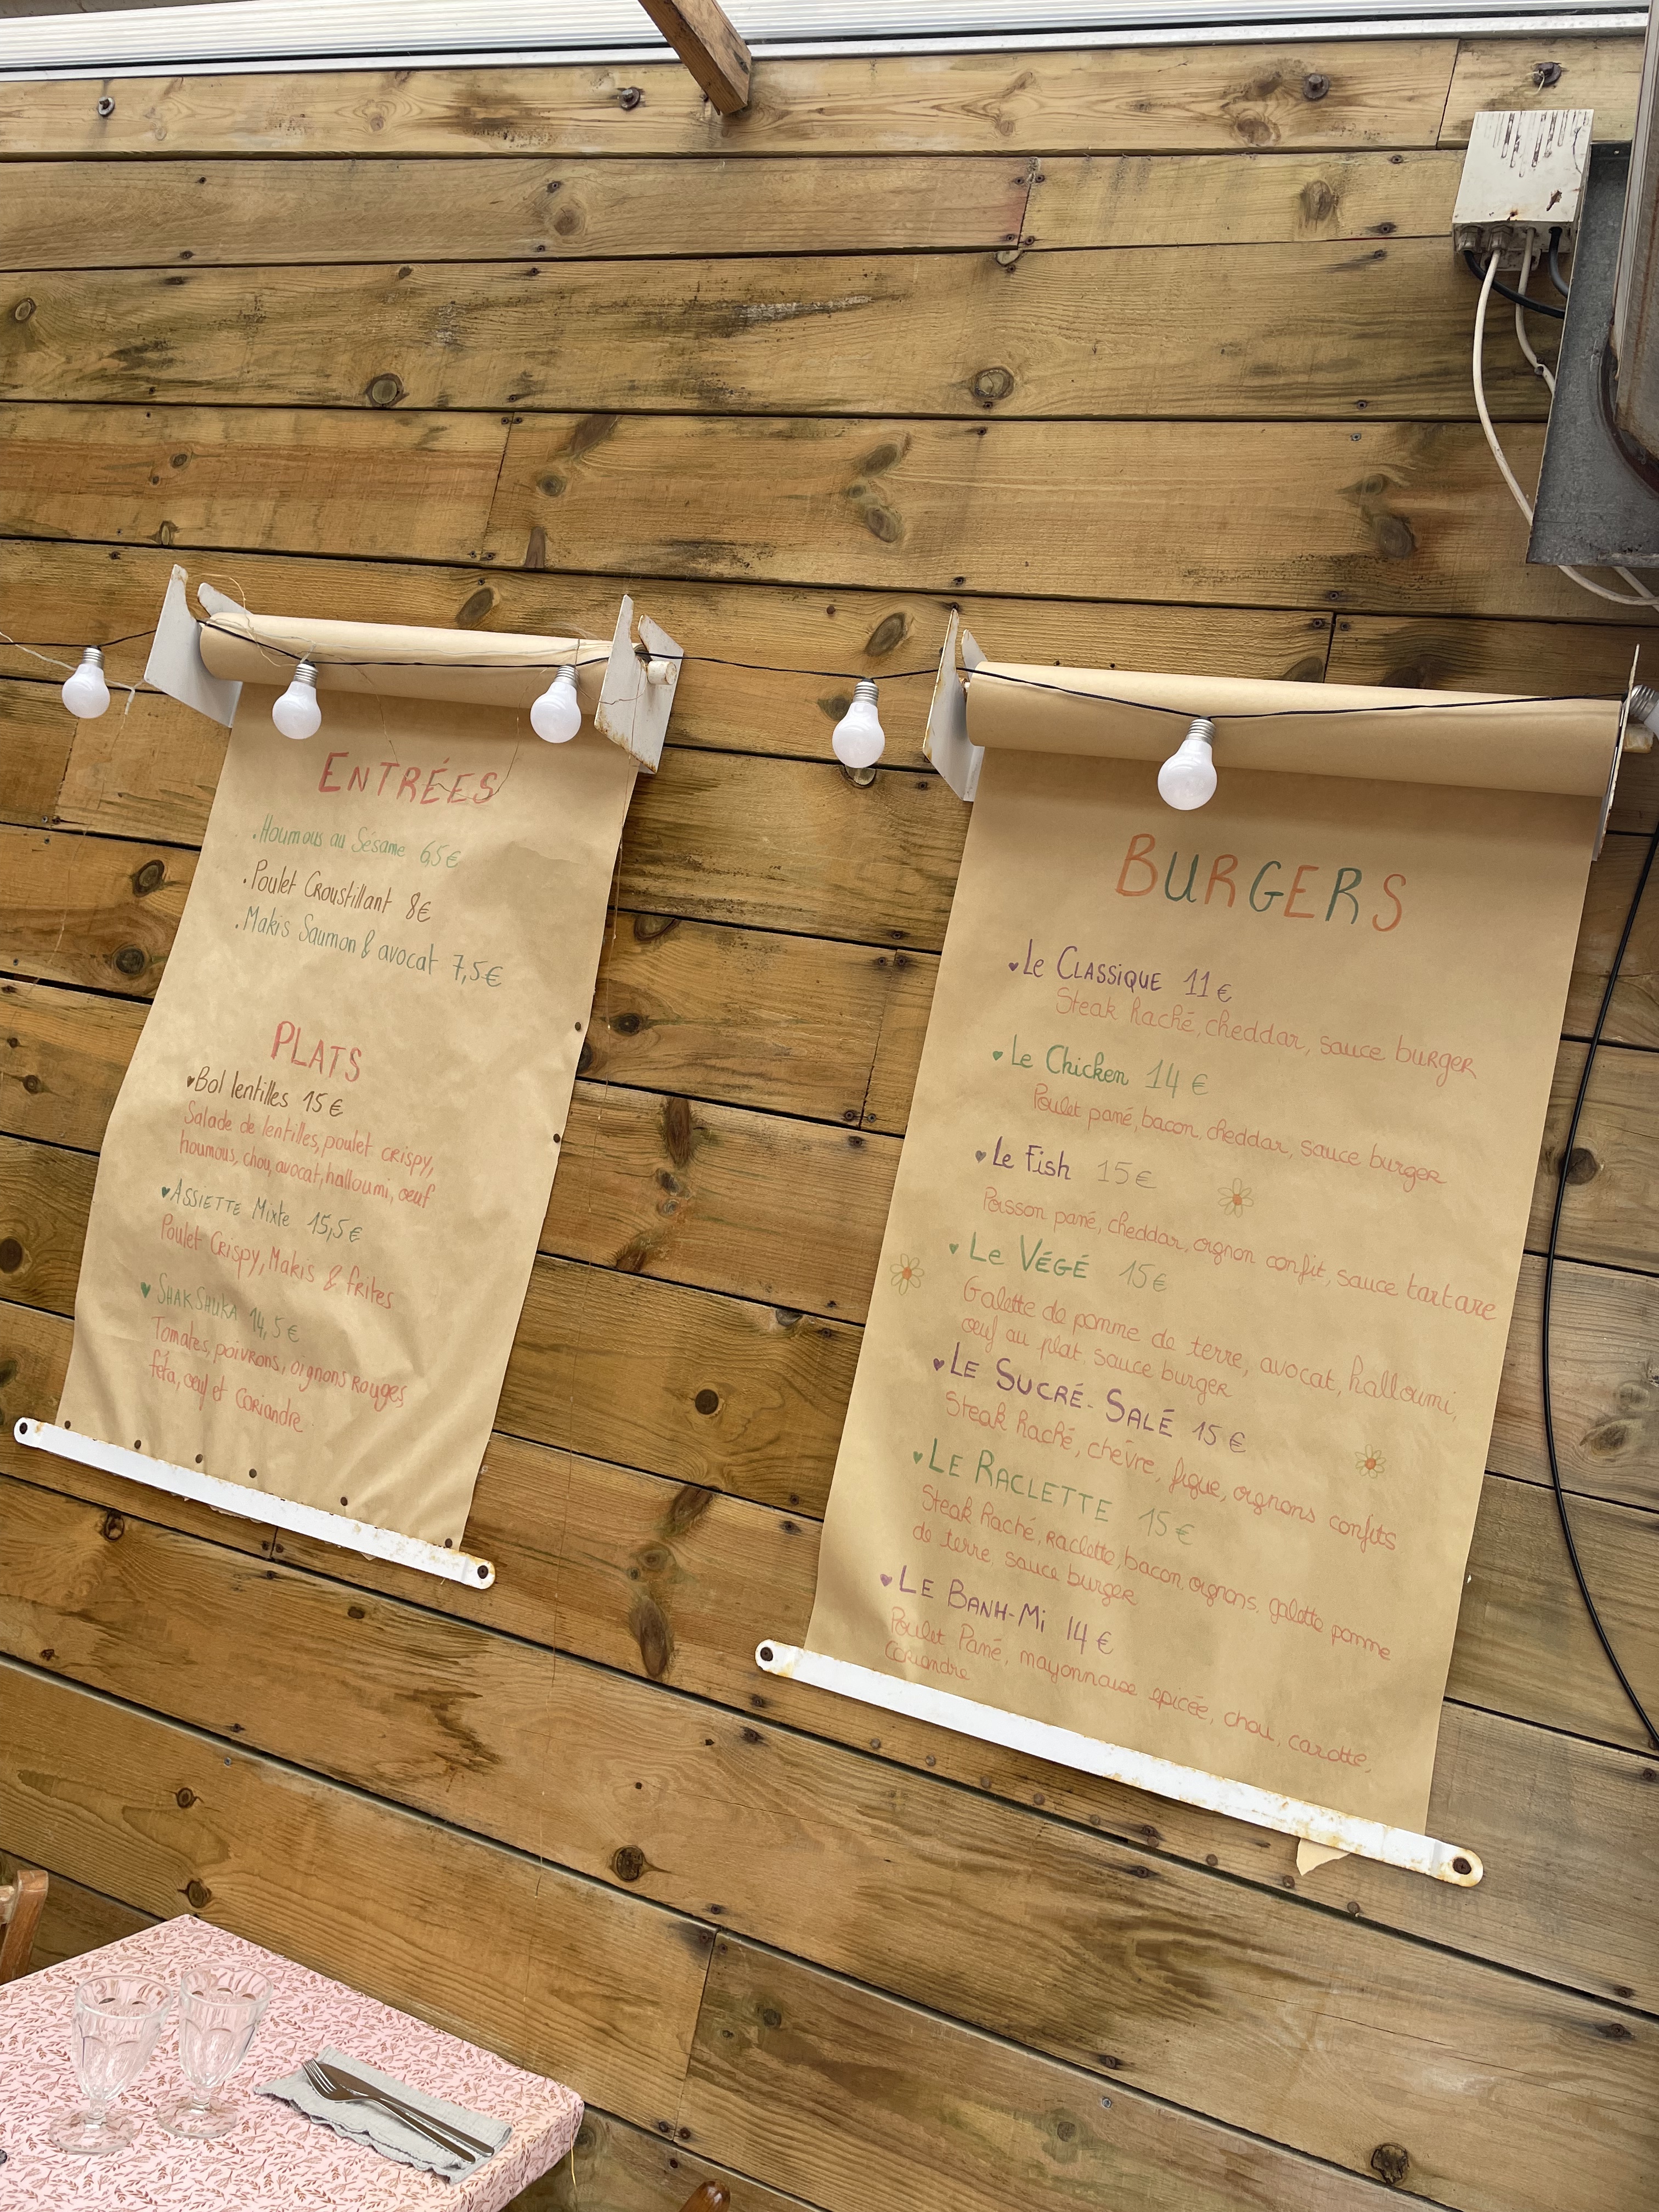 ENTRÉES
.Houmous au Sésame 6,5€
.Poulet Croustillant 8€
.Makis Saumon & avocat 7,5€
PLATS
♥Bol lentilles 15€
Salade de lentilles, poulet crispy,
houmous, chou, avocat, halloumi, œuf
♥ASSIETTE Mixte 15,5€
Poulet Crispy, Makis & frites
♥SHAKSHUKA 14,5€
Tomates, poivrons, oignons Rouges,
féta, œuf et Coriandre
BURGERS
♥Le CLASSiQUE 11€
Steak haché, cheddar, sauce burger
♥Le Chicken 14€
Poulet pané, bacon, cheddar, sauce burger
♥Le Fish 15€
Poisson pané, cheddar, oignon confit, sauce tartare
♥Le VÉGÉ 15€
Galette de pomme de terre, avocat, halloumi,
œuf au plat, sauce burger
♥LE SUCRÉ-SALÉ 15€
Steak haché, chèvre, figue, oignons confits
♥LE RACLETTE 15€
Steak haché, raclette, bacon, oignons, galette pomme
de terre, sauce burger
♥LE BANH-Mi 14€
Poulet Pané, mayonnaise épicée, chou, carotte,
Coriandre